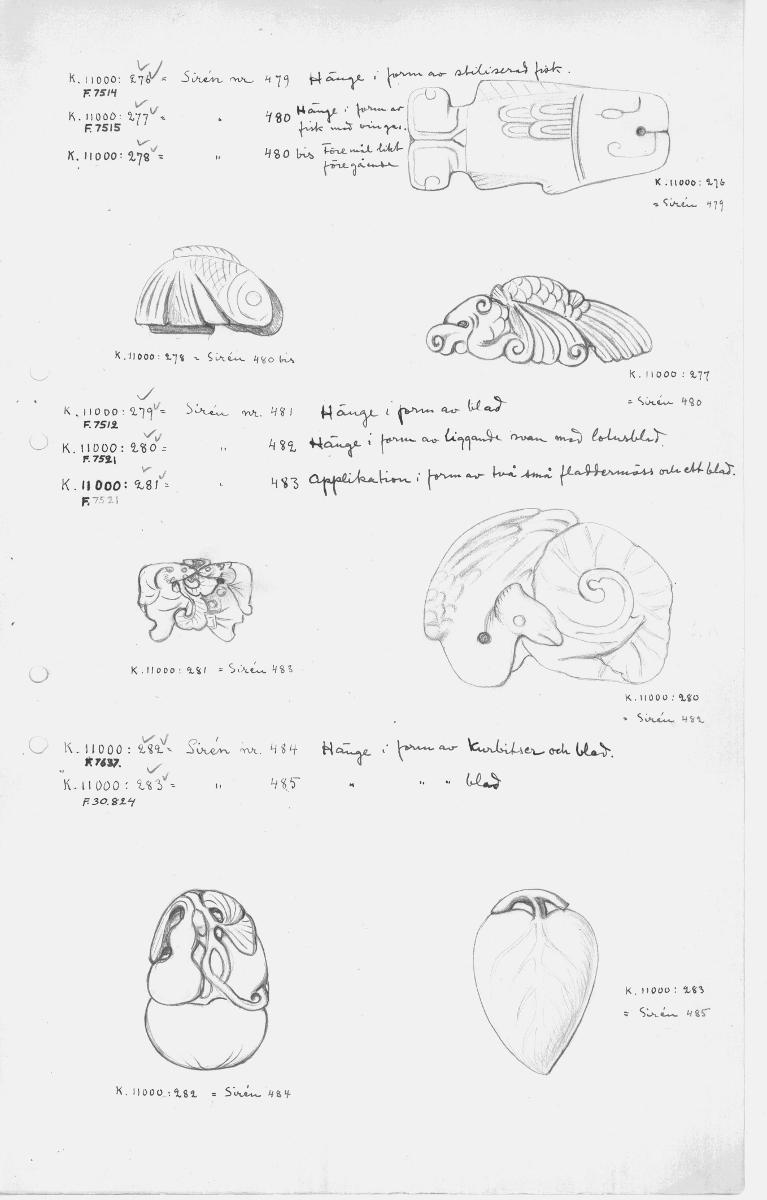 K. 11000: 276 = Sirén nr 479 Hänge i form av stiliserad fisk.
F. 7514
K. 11000: 277 = " 480 Hänge i form av
F. 7515 fisk med vingar.
K. 11000: 278 = " 480 bis Föremål likt
föregående
K. 11000: 276
= Sirén 479
K. 11000: 278 = Sirén 480 bis
K. 11000: 277
= Sirén 480
K. 11000: 279 = Sirén nr. 481 Hänge i form av blad
F. 7512
K. 11000: 280 = " 482 Hänge i form av liggande svan med lotusblad.
F. 7521
K. 11000: 281 = " 483 Applikation i form av två små fladdermöss och ett blad.
F. 7521
K. 11000: 281 = Sirén 483
K. 11000: 280
= Sirén 482
K. 11000: 282 = Sirén nr. 484 Hänge i form av kurbitser och blad.
K 7637.
" K. 11000: 283 = " 485 " " " blad
F. 30.824
K. 11000: 283
= Sirén 485
K. 11000: 282 = Sirén 484